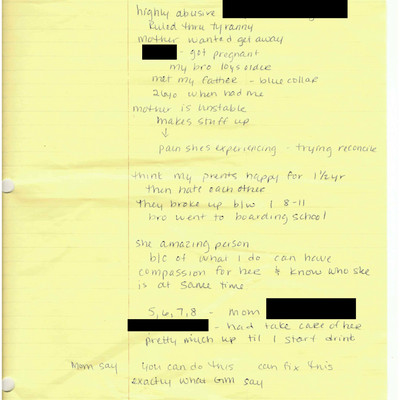 highly abusive
Ruled thru tyranny
mother wanted get away
- got pregnant
my bro 10ys older
met my father - blue collar
26yo when had me
mother is unstable
makes stuff up
↓
pain shes experiencing - trying reconcile
think my prents happy for 1 1/2 yr
then hate each other
They broke up b/w I 8-11
bro went to boarding school
she amazing person
b/c of what I do can have
compassion for her & know who she
is at same time
5,6,7,8 - mom
- had take care of her
pretty much up til I start drink
Mom say you can do this can fix this
exactly what GM say